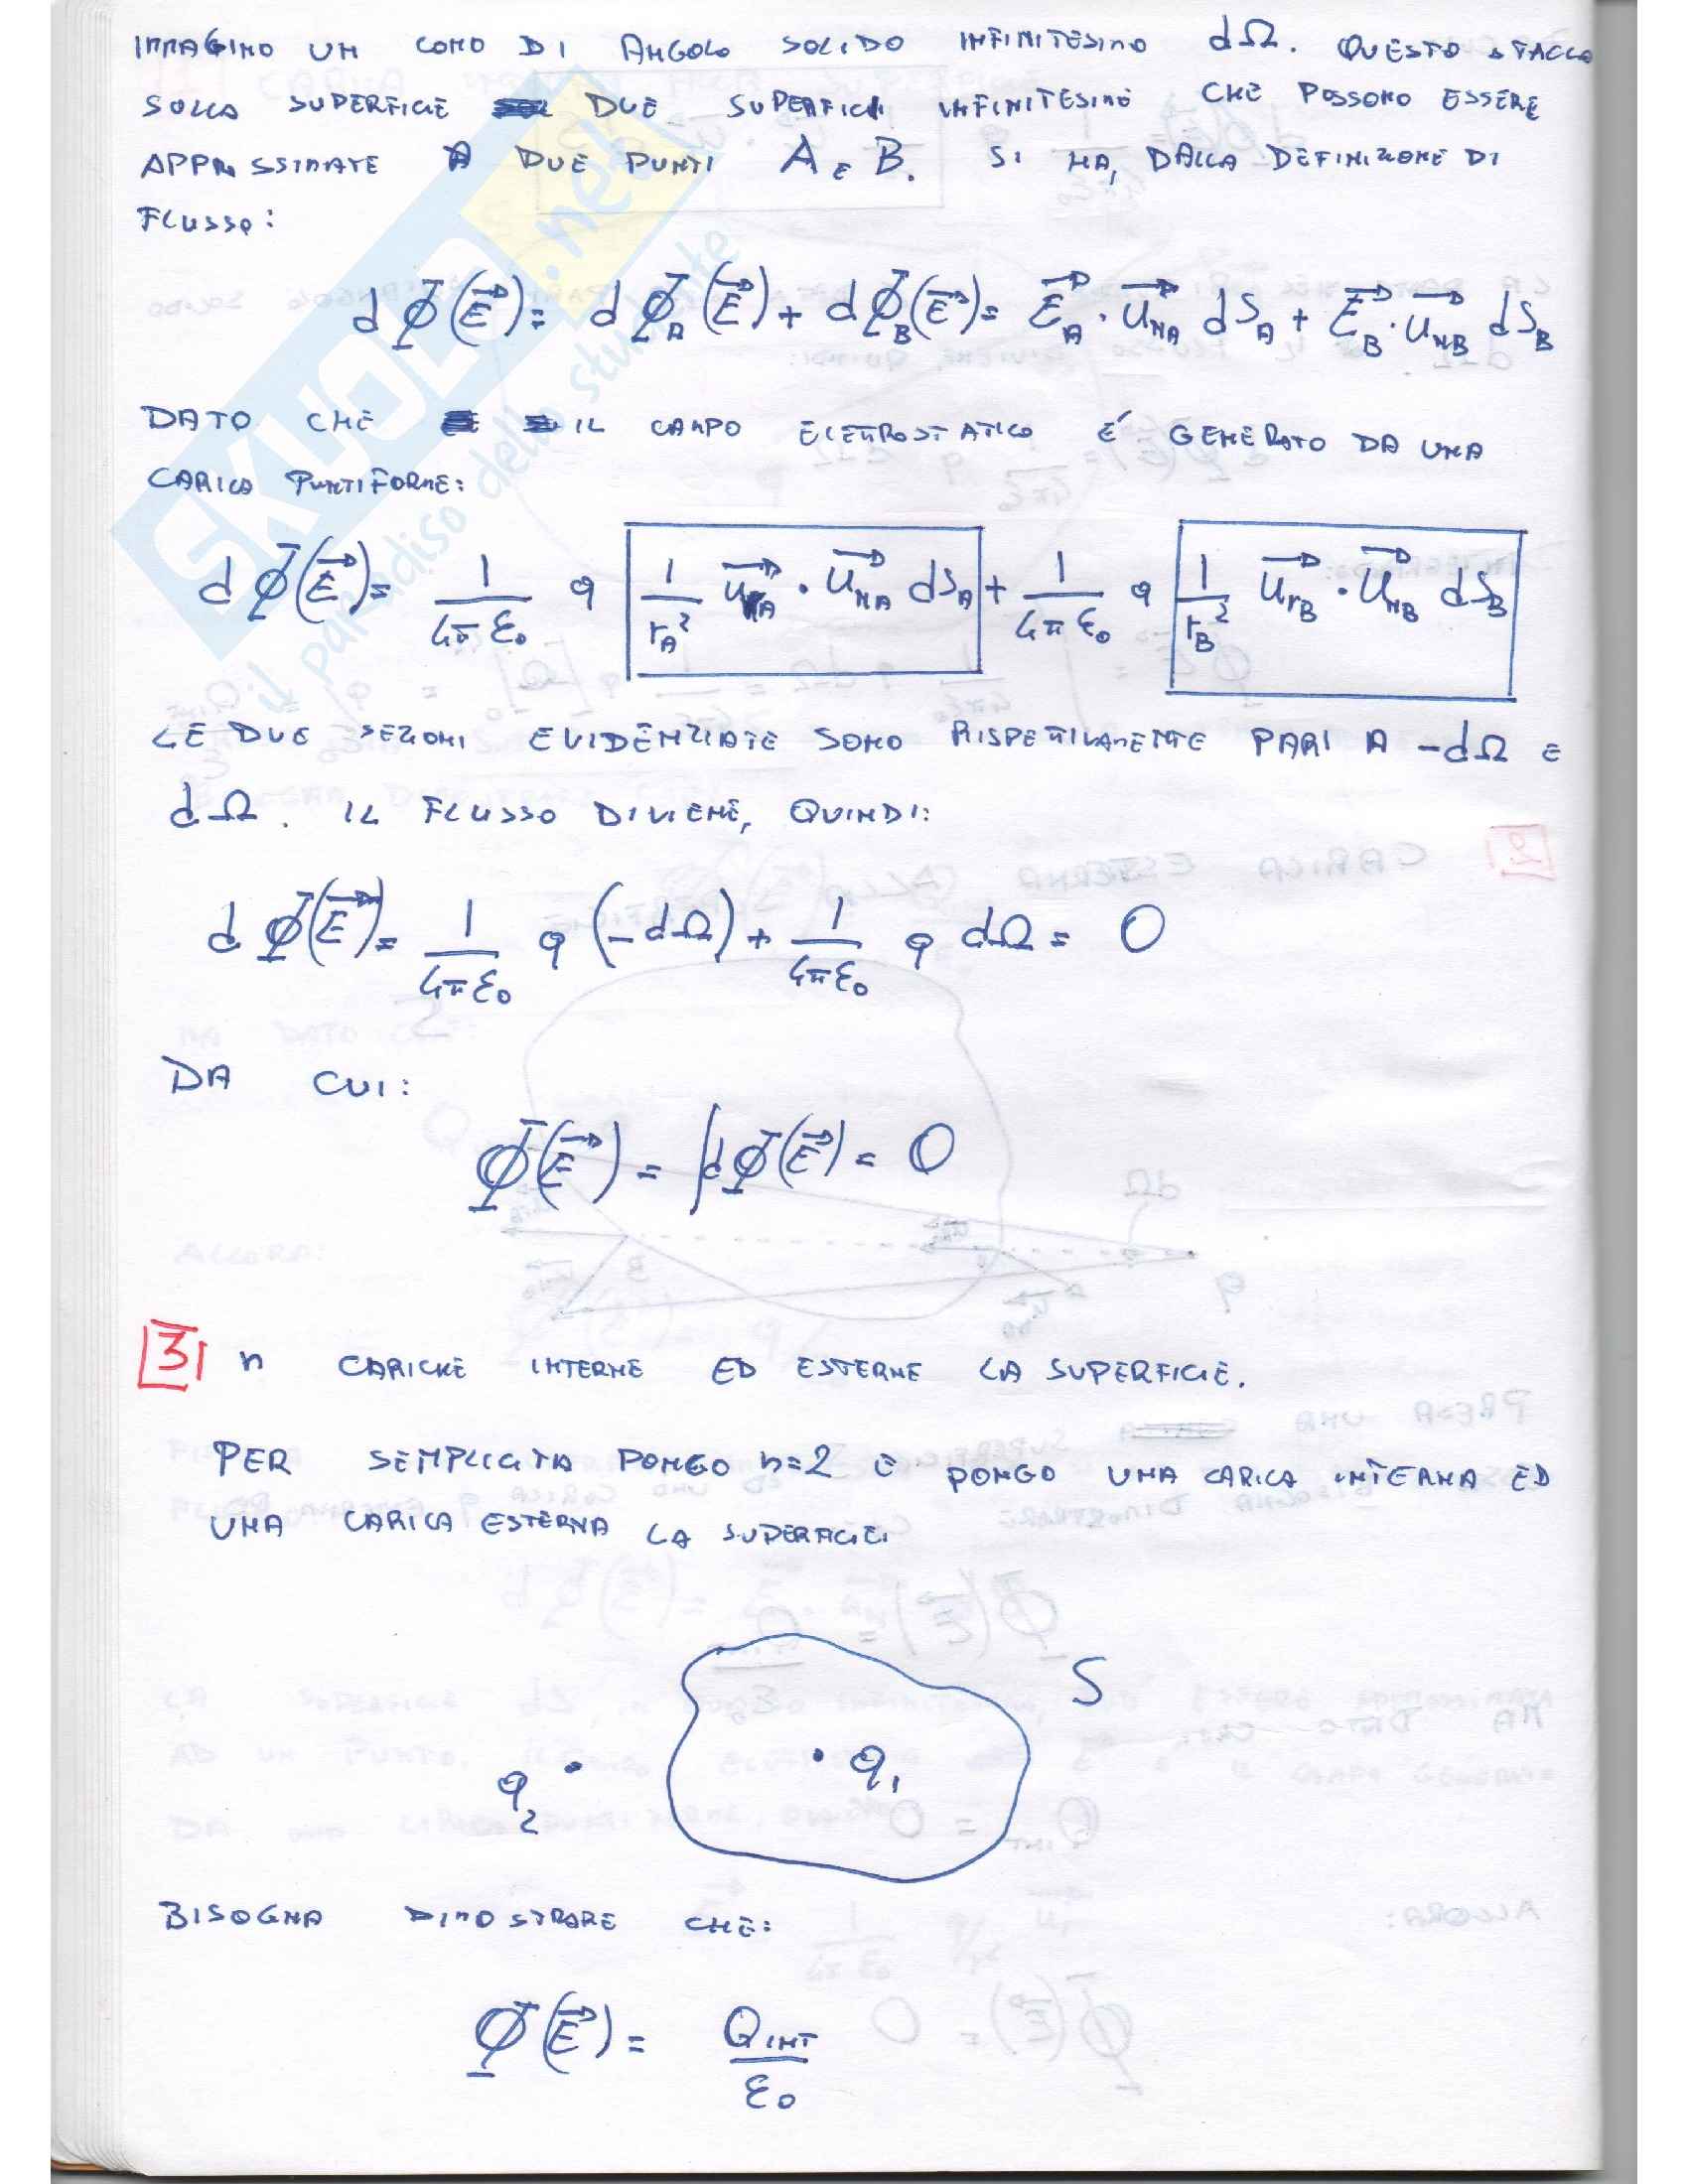 IMMAGINO UN CONO DI ANGOLO SOLIDO INFINITESIMO dΩ. QUESTO STACCA
SULLA SUPERFICIE DUE SUPERFICI INFINITESIME CHE POSSONO ESSERE
APPROSSIMATE A DUE PUNTI A E B. SI HA, DALLA DEFINIZIONE DI
FLUSSO:
dΦ(E⃗) = dΦ_A(E⃗) + dΦ_B(E⃗) = E⃗_A · u⃗_NA dS_A + E⃗_B · u⃗_NB dS_B
DATO CHE IL CAMPO ELETTROSTATICO É GENERATO DA UNA
CARICA PUNTIFORME:
dΦ(E⃗) = 1/(4πε₀) q 1/r_A² u⃗_rA · u⃗_NA dS_A + 1/(4πε₀) q 1/r_B² u⃗_rB · u⃗_NB dS_B
LE DUE SEZIONI EVIDENZIATE SONO RISPETTIVAMENTE PARI A -dΩ E
dΩ. IL FLUSSO DIVIENE, QUINDI:
dΦ(E⃗) = 1/(4πε₀) q (-dΩ) + 1/(4πε₀) q dΩ = 0
DA CUI:
Φ(E⃗) = ∫dΦ(E⃗) = 0
3 n CARICHE INTERNE ED ESTERNE LA SUPERFICIE.
PER SEMPLICITA PONGO n=2 E PONGO UNA CARICA INTERNA ED
UNA CARICA ESTERNA LA SUPERFICIE:
S
q₂ q₁
BISOGNA DIMOSTRARE CHE:
Φ(E⃗) = Q_INT/ε₀
SKUOLA.net
il paradiso dello studente